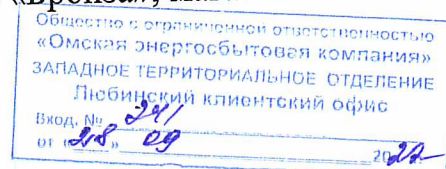 Общество с ограниченной ответственностью
«Омская энергосбытовая компания»
ЗАПАДНОЕ ТЕРРИТОРИАЛЬНОЕ ОТДЕЛЕНИЕ
Любинский клиентский офис
Вход. № 241
от «28» 09 2022